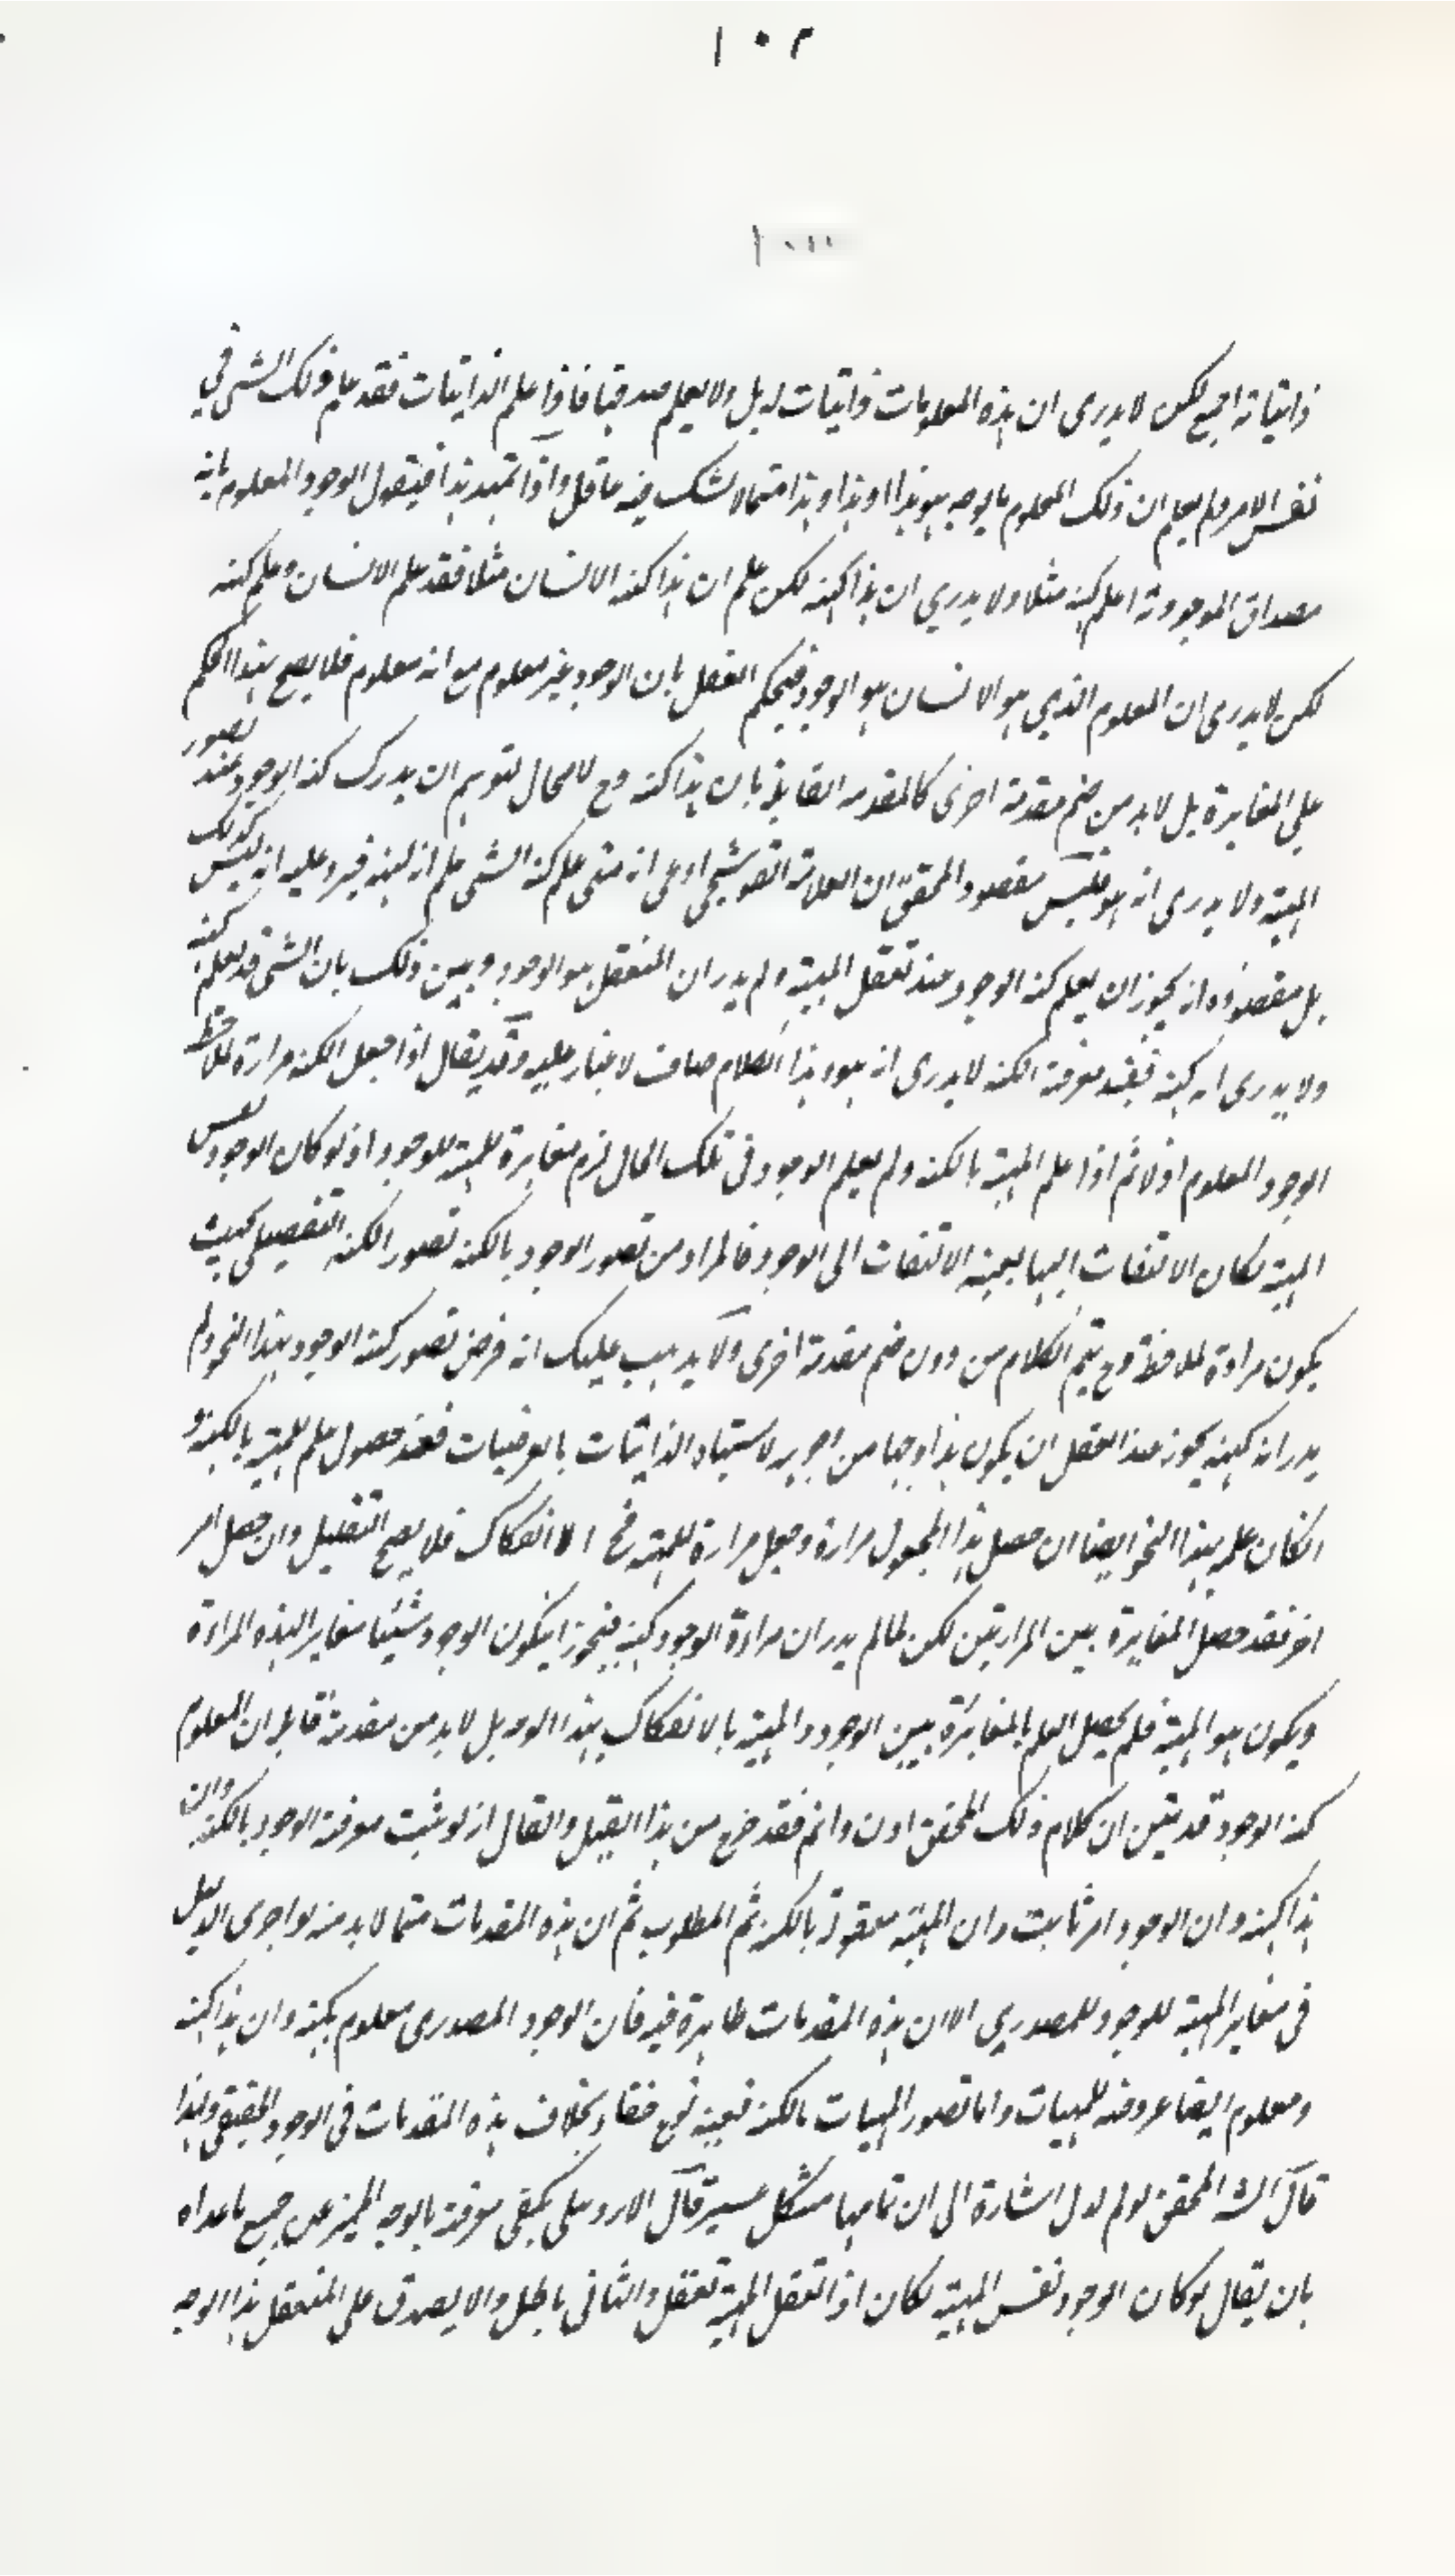 ١٠٣
ذاتياته اجمع لكن لا يدرى ان هذه المعلومات ذاتيات له بل ولا يعلم صدقها فاذا علم الذاتيات فقد علم ذلك الشى في
نفس الامر ولم يعلم ان ذلك المعلوم بالوجه هو هذا او هذا وهذا مما لا شك فيه عاقل واذا تمهد هذا فنقول الوجود المعلوم بانه
مصداق الموجودية اعلم كنهه مثلا ولا يدري ان هذا كنهه لكن علم ان هذا كنه الانسان مثلا فقد علم الانسان وعلم كنهه
لكن لا يدرى ان المعلوم الذي هو الانسان هو الوجود فيحكم العقل بان الوجود غير معلوم مع انه معلوم فلا يصح بهذا الحكم
على المغايرة بل لا بد من ضم مقدمة اخرى كالمقدمة القايلة بان هذا كنه وح لا مجال لتوهم ان يدرك كنه الوجود عند تصور
المهية ولا يدرى انه هو فليس مقصود المحقق ان العلامة القوشجي ادعى انه متى علم كنه الشى علم انه كنهه فيرد عليه انه ليس كذلك
بل مقصوده انه يجوز ان يعلم كنه الوجود عند تعقل المهية ولم يدر ان المتعقل هو الوجود وبين ذلك بان الشى قد يعلم كنهه
ولا يدرى انه كنهه فبعد معرفة الكنه لا يدرى انه هو وهذا الكلام صاف لا غبار عليه وقد يقال اذا جعل الكنه مرآة لملاحظة
الوجود المعلوم اولا ثم اذا علم المهية بالكنه ولم يعلم الوجود في تلك الحال لزم مغايرة المهية للوجود اذ لو كان الوجود نفس
المهية لكان الالتفات اليها بعينه الالتفات الى الوجود فالمراد من تصور الوجود بالكنه تصور الكنه التفصيلى بحيث
يكون مرآة لملاحظة وح يتم الكلام من دون ضم مقدمة اخرى ولا يذهب عليك انه فرض تصور كنه الوجود بهذا النحو ولم
يدر انه كنهه يجوز عند العقل ان يكون هذا وجها من وجوهه لاشتباه الذاتيات بالعرضيات فعند حصول علم المهية بالكنه و
ان كان علمه بهذا النحو ايضا ان حصل هذا المجعول مرآة وجعل مرآة للمهية فح لا انفكاك فلا يصح التعليل وان حصل امر
اخر فقد حصل المغايرة بين المرآتين لكن لما لم يدر ان مرآة الوجود كنهه فيجوز ان يكون الوجود شيئا مغايرا لهذه المرآة
ويكون هو المهية فلم يحصل العلم بالمغايرة بين الوجود والمهية بالانفكاك بهذا الوجه بل لا بد من مقدمة قايلة ان المعلوم
كنه الوجود قد يتبين ان كلام ذلك المحقق ادق واتم فقد خرج من هذا القيل والقال انه لو ثبت معرفة الوجود بالكنه وان
هذا كنهه وان الوجود امر ثابت وان المهية معقولة بالكنه ثم المطلوب ثم ان هذه المقدمات مما لا بد منه لو اجرى الدليل
في مغاير المهية للوجود المصدري الا ان هذه المقدمات ظاهرة فيه فان الوجود المصدرى معلوم بكنهه وان هذا كنهه
ومعلوم ايضا عروضه للمهيات واما تصور المهيات بالكنه ففيه نوع خفاء بخلاف هذه المقدمات في الوجود الحقيقي ولهذا
قال الش المحقق لو لم اشارة الى ان تمامها مشكل عسير قال الاردبيلى يكفى معرفته بالوجه المميز عن جميع ما عداه
بان يقال لو كان الوجود نفس المهية لكان اذا تعقل المهية تعقل والثانى باطل والا يصدق على المتعقل هذا الوجه